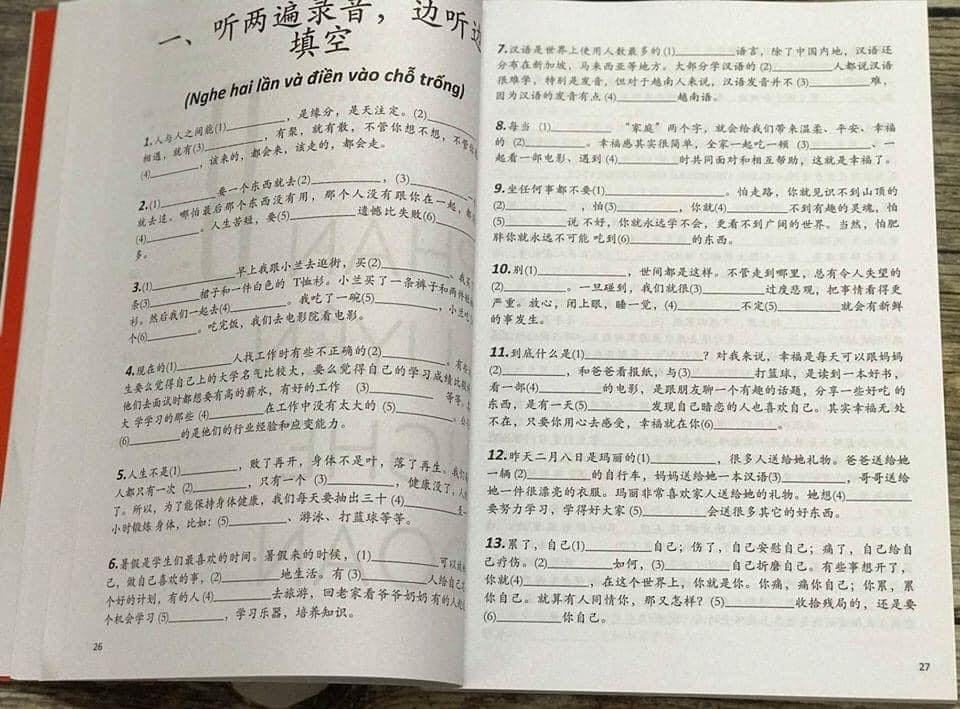 一、听两遍录音，边听边
填空
(Nghe hai lần và điền vào chỗ trống)
1.人与人之间能(1)_________，是缘分，是天注定。(2)_________
相遇，就有(3)_________，有聚，就有散，不管你想不想，不管你
(4)_________，该来的，都会来，该走的，都会走。
2.(1)_________要一个东西就去(2)_________，(3)_________
就去追。哪怕最后那个东西没有用，那个人没有跟你在一起，都
(4)_________。人生苦短，要(5)_________遗憾比失败(6)_________
多。
3.(1)_________早上我跟小兰去逛街，买(2)_________。我买
条(3)_________裙子和一件白色的 T恤衫。小兰买了一条裤子和两件
衫。然后我们一起去(4)_________。我吃了一碗(5)_________，小兰吃
个(6)_________。吃完饭，我们去电影院看电影。
4.现在的(1)_________人找工作时有些不正确的(2)_________。有些
生要么觉得自己上的大学名气比较大，要么觉得自己的学习成绩比
他们去面试时都想要有高的薪水，有好的工作 (3)_________ 等等。
大 学学习的那些 (4)_________在工作中没有太大的 (5)_________。
(6)_________的是他们的行业经验和应变能力。
5.人生不是(1)_________，败了再开，身体不是叶，落了再生。我们
人都只有一次 (2)_________，只有一个 (3)_________，健康没了，人
了。所以，为了能保持身体健康，我们每天要抽出三十 (4)_________
小时锻炼 身体，比如：(5)_________、游泳、打篮球等等。
6.暑假是学生们最喜欢的时间。暑假来的时候，(1)_________可以
己，做自己喜欢的事，(2)_________地生活。有 (3)_________人给自己
个好的计划，有的人 (4)_________去旅游，回老家看爷爷奶奶 有的人
个机会学习 (5)_________，学习乐器，培养知识。
26
7.汉语是世界上使用人数最多的 (1)_________语言，除了中国内地，汉语 还
分布在新加坡，马来西亚等地方。大部分学汉语的 (2)_________人都说汉语
很难学，特别是发音，但对于越南人来说，汉语发音并不 (3)_________难，
因为汉语的发音有点 (4)_________越南语。
8.每当 (1)_________ “家庭”两个字，就会给我们带来温柔、平安、幸福
的 (2)_________。幸福感其实很简单，全家一起吃一顿 (3)_________、一
起看一部电影、遇到 (4)_________时共同面对和相互帮助，这就是幸福了。
9.坐任何事都不要(1)_________。怕走路，你就见识不到山顶的
(2)_________ ，怕(3)_________，你就(4)_________不到有趣的灵魂，怕
(5)_________说 不好，你就永远学不会，更看不到广阔的世界。当然，怕肥
胖你就永远不可能 吃到(6)_________的东西。
10.别(1)_________，世间都是这样。不管走到哪里，总有令人失望的
(2)_________。一旦碰到，我们就很(3)_________过度悲观，把事情看得更
严重。放心，闭上眼，睡一觉，(4)_________不定(5)_________就会有新鲜
的事发生。
11.到底什么是(1)_________？对我来说，幸福是每天可以跟妈妈
(2)_________，和爸爸看报纸，与(3)_________打篮球，是读到一本好书，
看一部(4)_________的电影，是跟朋友聊一个有趣的话题，分享一些好吃 的
东西，是有一天(5)_________发现自己暗恋的人也喜欢自己。其实幸福无 处
不在，只要你用心去感受，幸福就在你(6)_________。
12.昨天二月八日是玛丽的(1)_________，很多人送给她礼物。爸爸送给她
一辆 (2)_________的自行车，妈妈送给她一本汉语(3)_________，哥哥送给
她一件很漂亮的衣服。玛丽非常喜欢家人送给她的礼物。她想(4)_________
要努力学习，学得好大家 (5)_________会送很多其它的好东西。
13.累了，自己(1)_________自己；伤了，自己安慰自己；痛了，自己给自
己疗伤。(2)_________如何，(3)_________自己折磨自己。有些事想开了，
你就(4)_________，在这个世界上，你就是你。你痛，痛你自己；你累，累
你自己。就算有人同情你，那又怎样？(5)_________收拾残局的，还是要
(6)_________你自己。
27